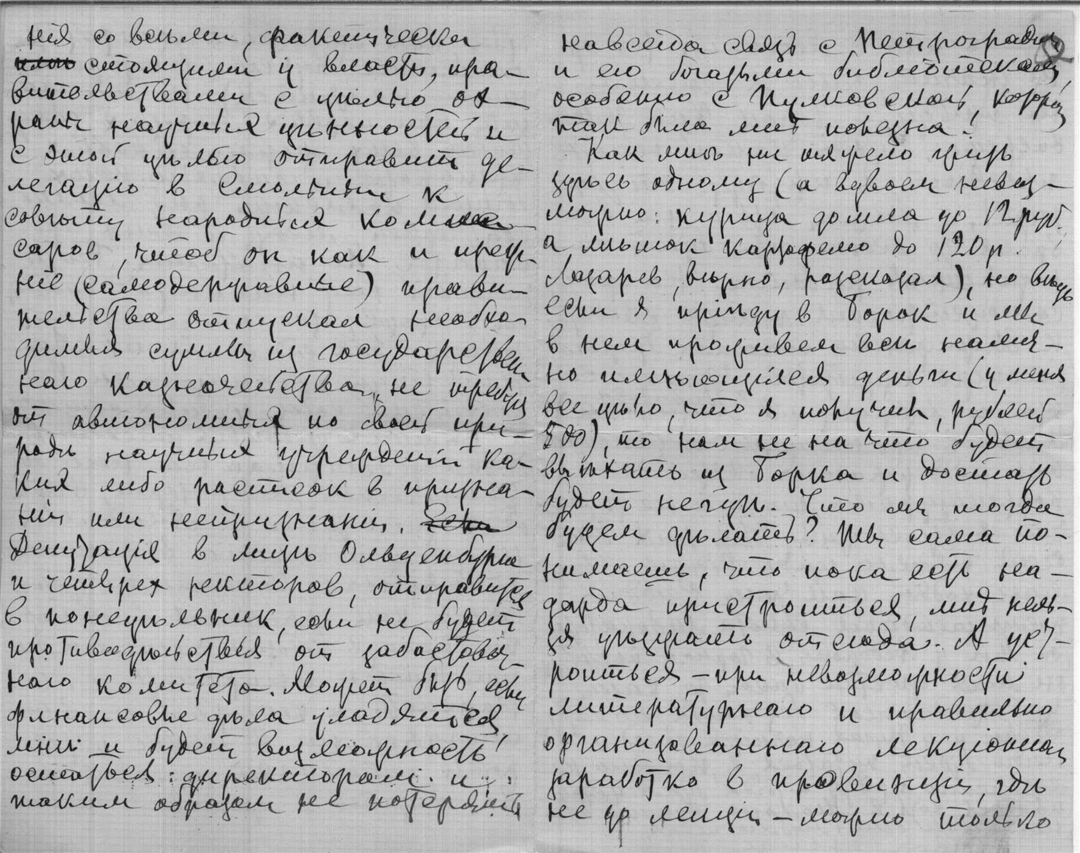 нія со всѣми, фактически
стоящими у власти, пра-
вительствами с цѣлью ох-
раны научных цѣнностей и
с этой цѣлью отправит де-
легацію в Смольный к
совѣту народных комис-
саров, чтоб он как и преж-
ніе (самодержавные) прави-
тельства отпускал необхо-
димыя суммы из государствен
наго казначейства, не требуя
от автономных по своей при-
родѣ научных учрежденій ка-
ких либо расписок в призна-
ніи или непризнаніи.
Депутація в лицѣ Ольденбурга
и четырех ректоров, отправится
в понедѣльник, если не будет
противодѣйствія от забастовоч-
наго комитета. Может быть, если
финансовые дѣла уладятся,
мнѣ и будет возможность
остаться директором и
таким образом не потерять
навсегда связь с Петроградом
и его богатыми библіотеками,
особенно с Пулковской, которая
так была мнѣ полезна.
Как мнѣ ни тяжело жить
здѣсь одному (а вдвоем невоз-
можно: курица дошла до 12 руб.,
а мѣшок картофелю до 120 р.
Лазарев, вѣрно, разсказал), но вѣдь
если я пріѣду в Борок и мы
в нем проживем всѣ налич-
но имѣющіяся деньги (у меня
все цѣло, что я получил, рублей
500), то нам не на что будет
выѣхать из Борка и достать
будет негдѣ. Что мы тогда
будем дѣлать? Ты сама по-
нимаешь, что пока есть на-
дежда пристроиться, мнѣ нель-
зя уѣзжать отсюда. А уст-
роиться – при невозможности
литературнаго и правильно
организованнаго лекціонная
заработка в провинціи, гдѣ
не до лекцій – можно только